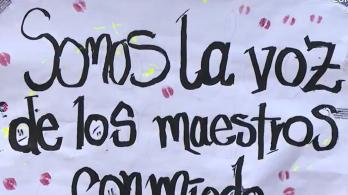 Somos la voz
de los maestros
con miedo